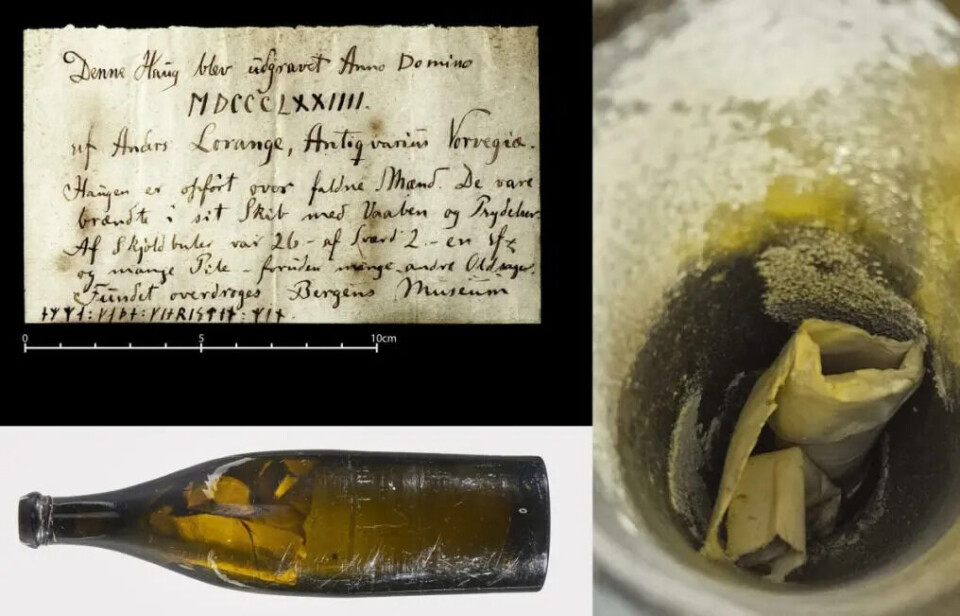 Denne Haug blev udgravet Anno Domino
MDCCCLXXIIII.
af Anders Lorange, Antiqvarius Norvegiæ.
Haugen er opfört over faldne Mænd. De vare
brændte i sit Skib med Vaaben og Prydelser
Af Skjoldbuler var 26 - af Sværd 2. - en
og mange Pile - foruden mange andre Oldsager.
Fundet overdroges Bergens Museum
0 5 10cm